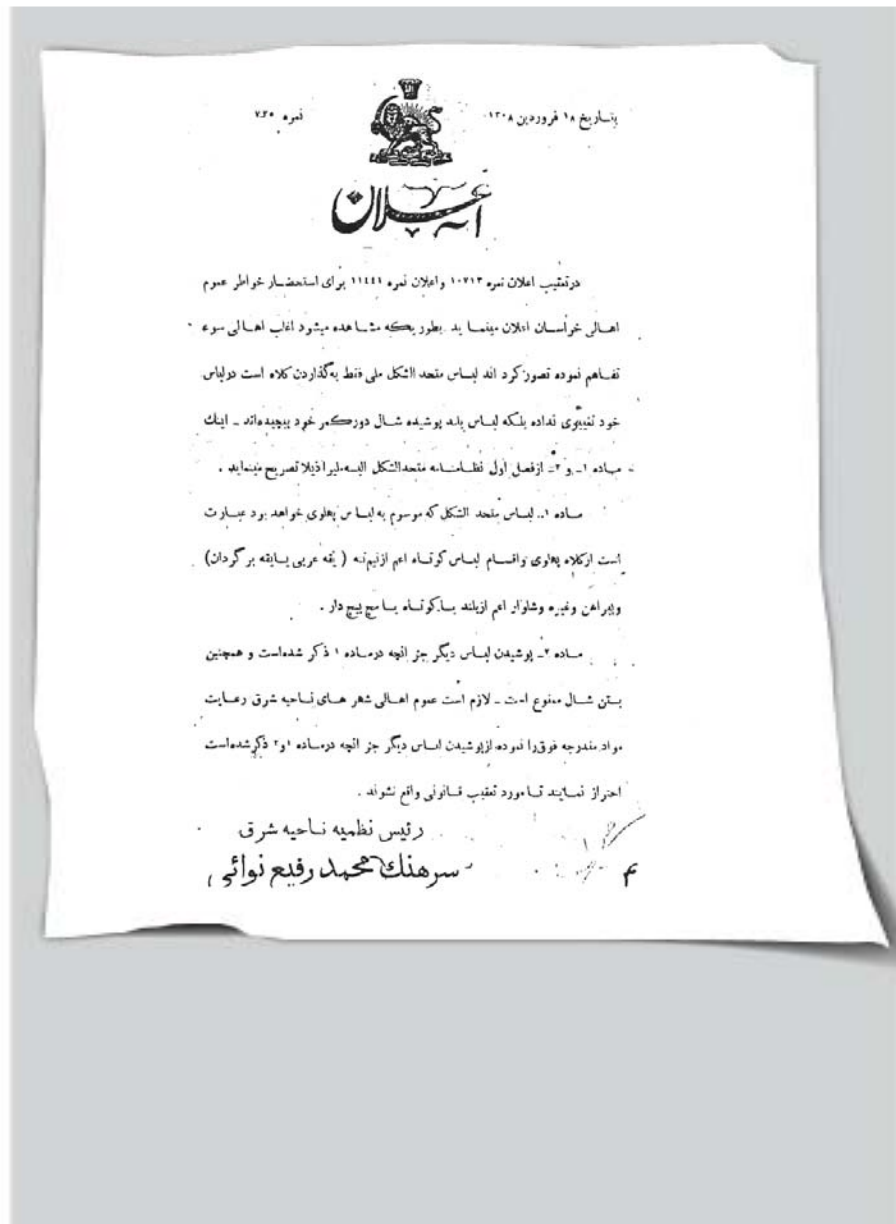 بتاریخ ۱۸ فروردین ۱۳۰۸
نمره ۷۳۵
اعلان
درتعقیب اعلان نمره ۱۰۷۱۳ واعلان نمره ۱۱٤٤۱ برای استحضار خواطر عموم
اهالی خراسان اعلان مینماید بطوریکه مشاهده میشود اغلب اهالی سوء
تفاهم نموده تصور کرد اند لباس متحد الشکل ملی فقط به گذاردن کلاه است درلباس
خود تغییری نداده بلکه لباس بلند پوشیده شال دورکمر خود پیچیده‌اند ـ اینك
ماده ۱ـ و ۲ـ ازفصل اول نظامنامه متحدالشکل البسه را ذیلا تصریح مینماید .
ماده ۱ـ لباس متحد الشکل که موسوم به لباس پهلوی خواهد بود عبارت
است ازکلاه پهلوی واقسام لباس کوتاه اعم ازنیم‌تنه ( یقه عربی یا یقه برگردان)
وپیراهن وغیره وشلوار اعم ازبلند یا کوتاه یا مچ پیچ دار .
ماده ۲ـ پوشیدن لباس دیگر جز انچه درماده ۱ ذکر شده‌است و همچنین
بستن شال ممنوع است ـ لازم است عموم اهالی شهر های ناحیه شرق رعایت
مواد مندرجه فوق را نموده ازپوشیدن لباس دیگر جز انچه درماده ۱و۲ ذکرشده‌است
احتراز نمایند تا مورد تعقیب قانونی واقع نشوند .
رئیس نظمیه ناحیه شرق
سرهنك محمد رفیع نوائی